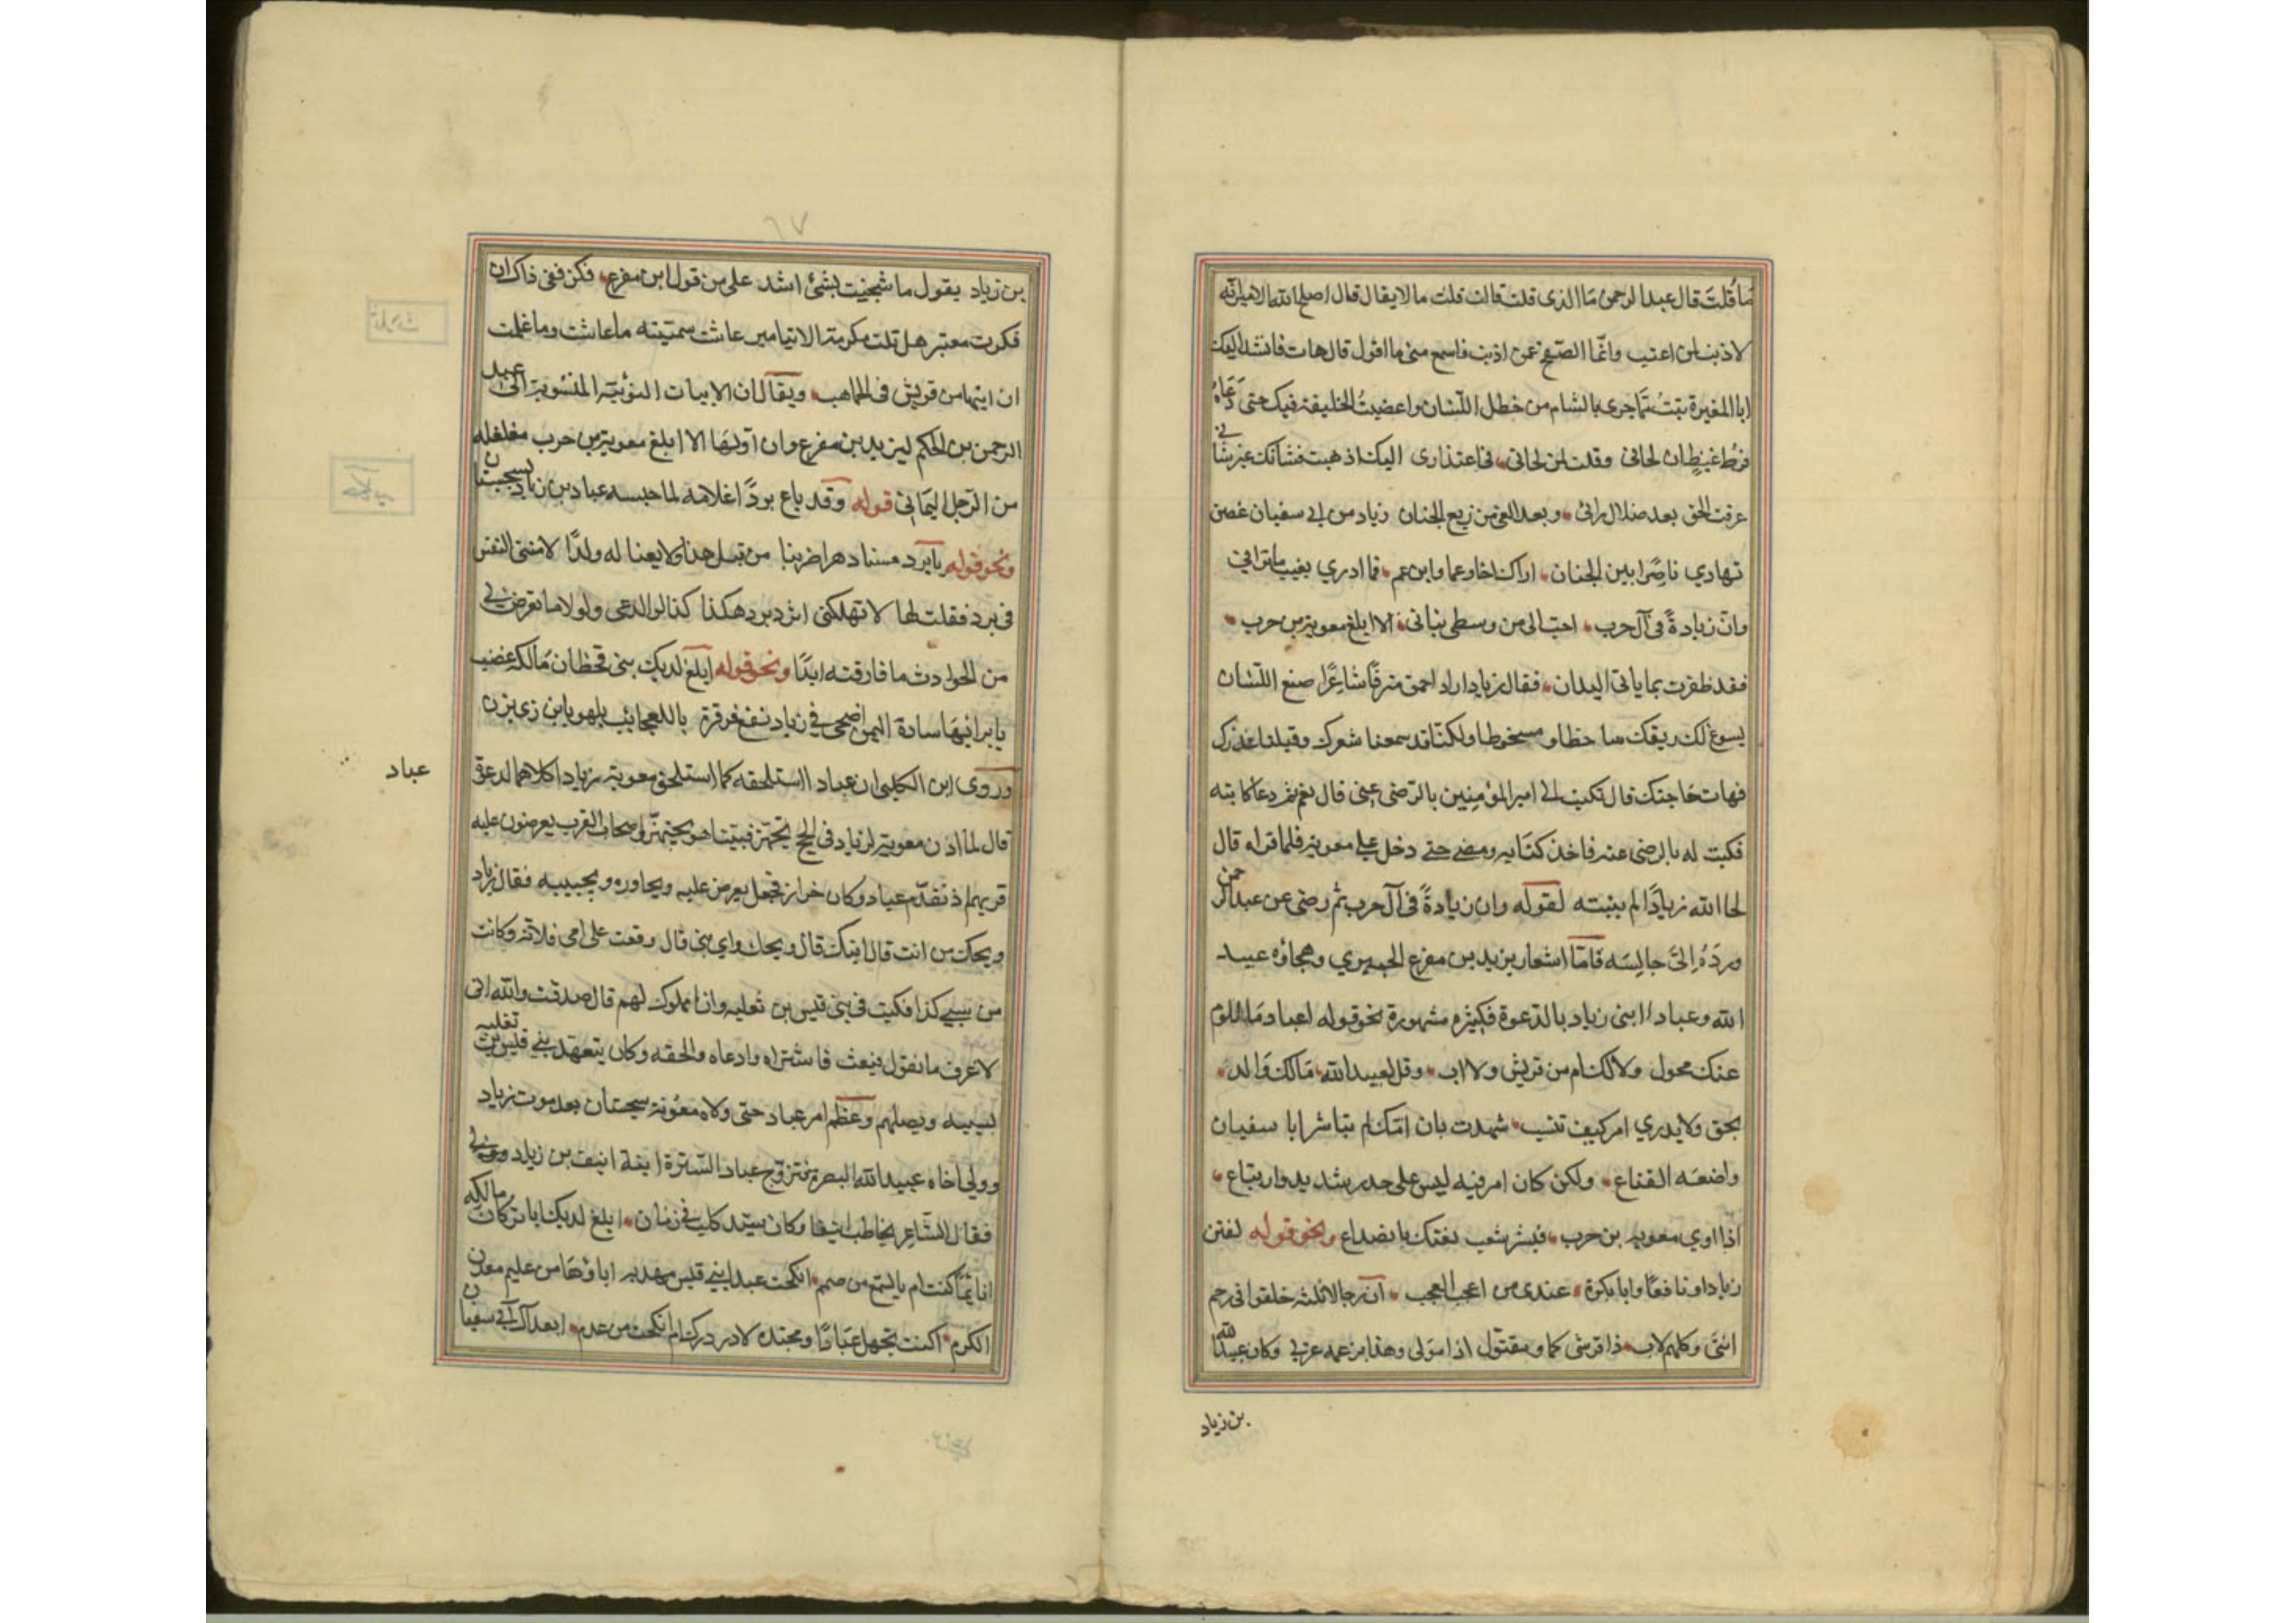 مَا قُلتَ قال عبد الرحمن مَا الذى قلت قال قلت ما لا يقال قال اصلح الله الامير انه
لا ذنب لمن اعتب وانّما الصّفح عمن اذنب فاسمع منى ما اقول قال هات فانشد اليك
ابا المغيرة تبتُ ممّا جرى بالشام من خطل اللّسان واغضبتُ الخليفة فيك حتى دَعَاهُ
فرط غيظ ان لحانى وقلت لمن لحانى فى اعتذارى اليك اذهبت فشأنك غير شانى
عرفت الحق بعد ضلال رائى وبعد الغى من زيغ الجنان زياد من ابى سفيان غصن
تهادي ناضِرًا بين الجنان اراك اخا وعما وابن عم فما ادري بغيب ما ترانى
وان زيادةً فى آل حرب احبّ الى من وسطى بنانى الا ابلغ معوية بن حرب
فقد ظفرت بما ياتى اليدان فقال زياد اراد احمق مترفًا شاعِرًا صنع اللّسان
يسوغ لك ريقك ساخطا ومسخوطا ولكنّا قد سمعنا شعرك وقبلنا عذرك
فهات حَاجتك قال تكتب الى امير المؤمِنين بالرّضى عنى قال نعم ثم دعا كاتبه
فكتب له بالرضى عنه فاخذ كتابه ومضى حتى دخل على معوية فلما قراه قال
لحا الله زيادًا لم يتنبه لقوله وان زيادةً فى آل حرب ثم رضى عن عبد الرحمن
وردّهُ اِلىَ حالِته فامّا اشعار يزيد بن مفرع الحميري وهجاؤه عبيد
الله وعباد ابنى زياد بالدّعوة فكثيره مشهورة نحو قوله اعباد مَا للوم
عنك محول ولا لك ام من قريش ولا اب وقل لعبيد الله مَالك وَالد
بحق ولا يدري امر كيف تنسب شهدت بان امّك لم تباشر ابا سفيان
واضعَه القناع ولكن كان امر فيه ليس على حذر شديد وارتياع
اذا اودي معويه بن حرب فبشر شعب قعبك بانصداع ونحو قوله
زيادا ونافعًا وابا بكرة عندى من اعجب العجب ان رجالا ثلثه خلقوا فى رحم
انثىَ وكلهم لاب ذا قرشى كما يقول وذا مولى وهذا بن عمه عربى وكان عبيد الله
بن زياد
٦٧
بن زياد يقول ما شجيت بشئ اشد على من قول ابن مفرع فكر ففى ذاك ان
فكرت معتبر هل نلت مكرمة الا بتامير عاشت سميته ما عاشت وما علمت
ان ابنها من قريش فى الجماهير ويقال ان الابيات النونيّة المنسوبة الى عبد
الرحمن بن الحكم ليزيد بن مفرع وان اوّلهَا الا ابلغ معوية بن حرب مغلغله
من الرّجل اليمانى قوله وقد باع بردًا غلامه لما حبسه عباد بن زياد بسجستان
ونحو قوله يا برد مسنا دهر اضر بنا من قبل هذا ولا بعنا له ولدًا
فى برد فقلت لها لا تهلكى اثر برد هكذا كندا لولا الدعى ولولا ما تعرض لى
من الحوادث ما فارقته ابدًا ونحو قوله ابلغ لديك بنى قحطان مَالكه عضت
باير ابيهَا سادة اليمن اضحى زياد فقع قرقرة ياللعجائب يلهو بابن ذى يزن
وروى ابن الكلبى ان عباد استلحقه كما استلحق معوية زيادا كلاهما لدعوة
عباد
قال لما اذن معوية لزياد فى الحج تجهّز فبينا هو يتجهّز واصحاب القرب يعرضون عليه
قربهم اذ تقدّم عباد وكان خرازا فجعل يعرض عليه ويحاوره ويجيبه فقال زياد
ويحك من انت قال ابنك قال ويحك واي بنى قال وقعت على امى فلانه وكانت
من بنى كذا فكنت فى بنى قيس بن ثعلبه وانا مملوك لهم قال صدقت والله انى
لاعرف ما تقول فبعث فاشتراه وادعاه والحقه وكان يتعهد بنى قيس بن ثعلبه
بسببه ويصلهم وعظم امر عباد حتى ولاه معوية سجستان بعد موت زياد
وولى اخاه عبيد الله البصرة فتزوج عباد السّتيرة ابنة انيف بن زياد
فقال الشّاعِر يخاطب انيفا وكان سيّد كلب فى زمانه ابلغ لديك ابا تركان مالكه
انائمًا كنت ام بالسّمع من صمم انكحت عبد بنى قيس مهذبه اباؤهَا من عليم معدن
الكرم اكنت تجهل عَبادًا ومحتده لا در درك ام انكحت من عدم ابعد آل ابى سفيان